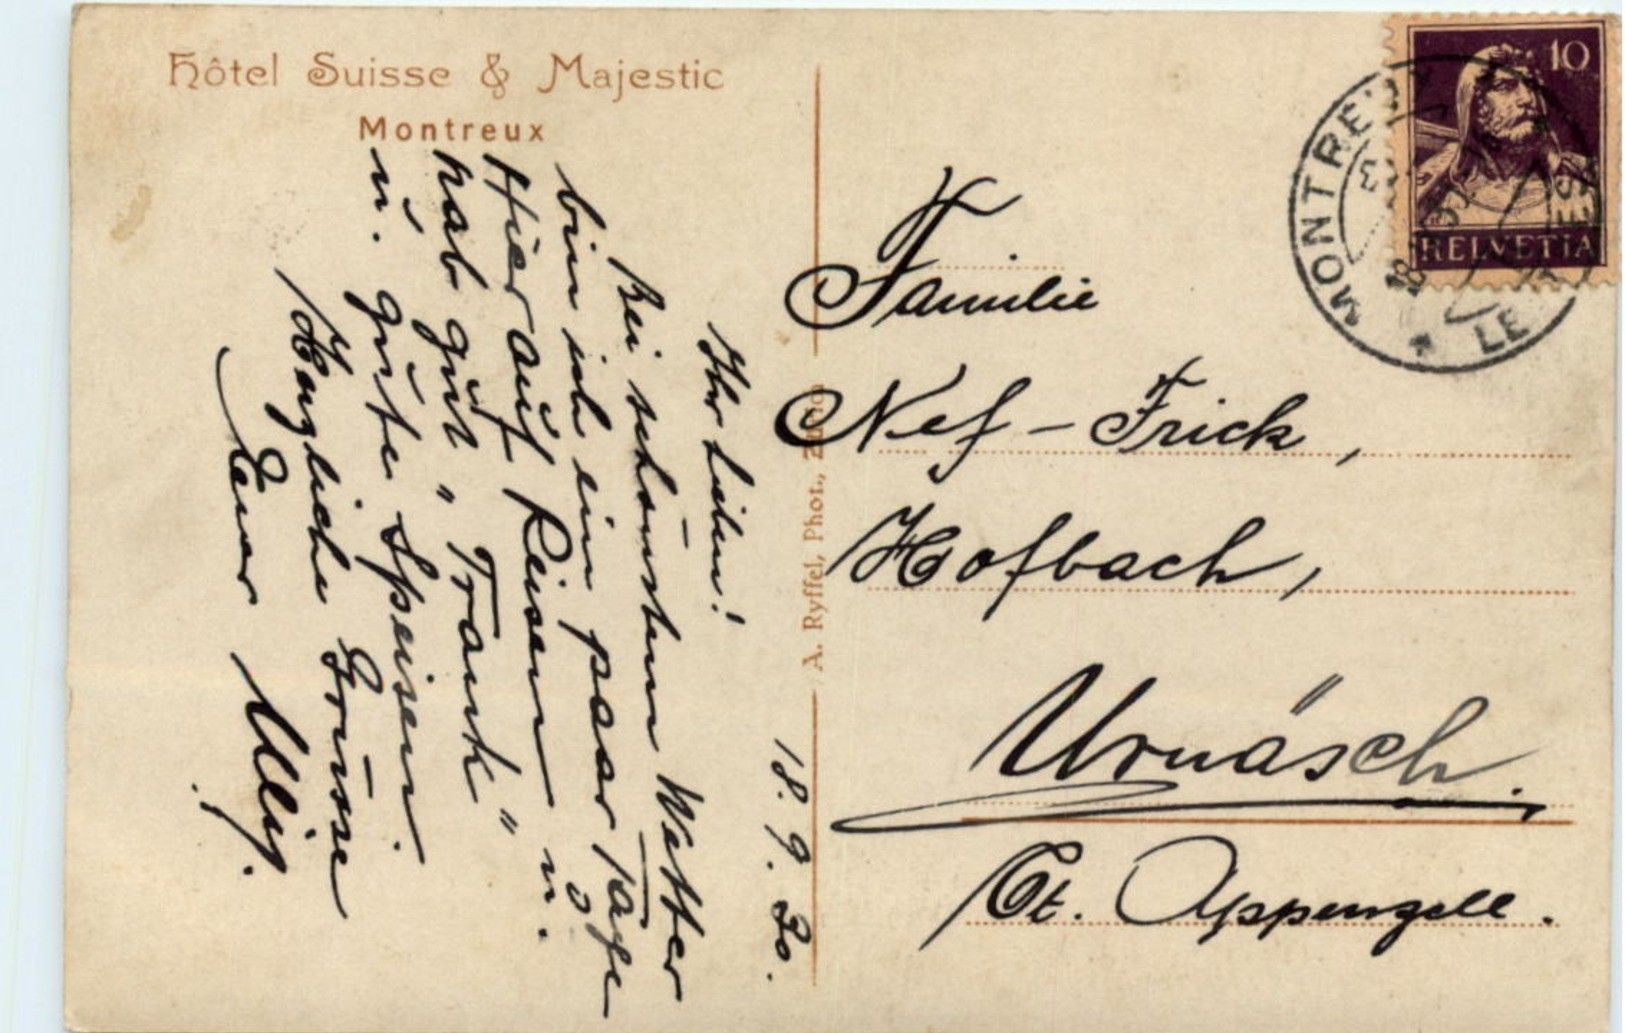 Hôtel Suisse & Majestic
Montreux
18. 9. 30.
Ihr Lieben!
Bei schönstem Wetter
bin ich ein paar Tage
hier auf Reisen u.
hab gut „Trank“
u. gute Speisen.
Herzliche Grüsse
Euer
A. Ryffel, Phot., Zürich
Familie
Nef-Frick,
Hofbach,
Urnäsch.
Ct. Appenzell.
10
HELVETIA
MONTREUX